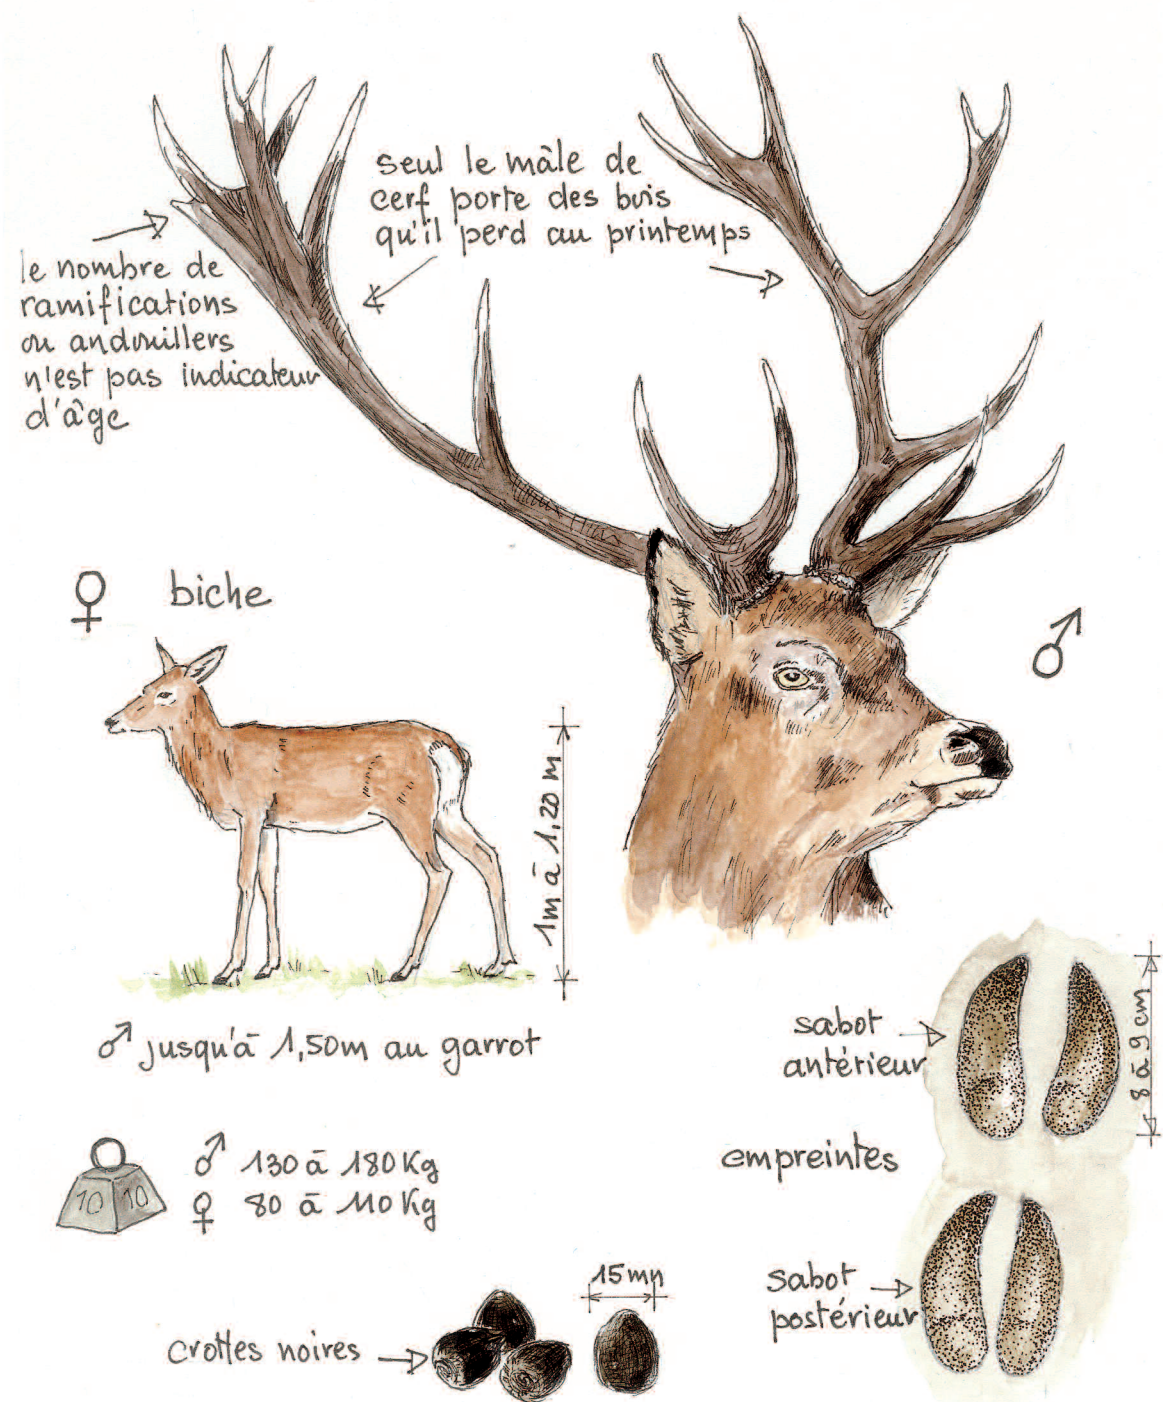 seul le mâle de
cerf porte des bois
qu'il perd au printemps
le nombre de
ramifications
ou andouillers
n'est pas indicateur
d'âge
♀ biche
♂
1m à 1,20 m
♂ jusqu'à 1,50m au garrot
sabot
antérieur
8 à 9 cm
empreintes
10 10
♂ 130 à 180 Kg
♀ 80 à 110 Kg
sabot
postérieur
15mm
crottes noires